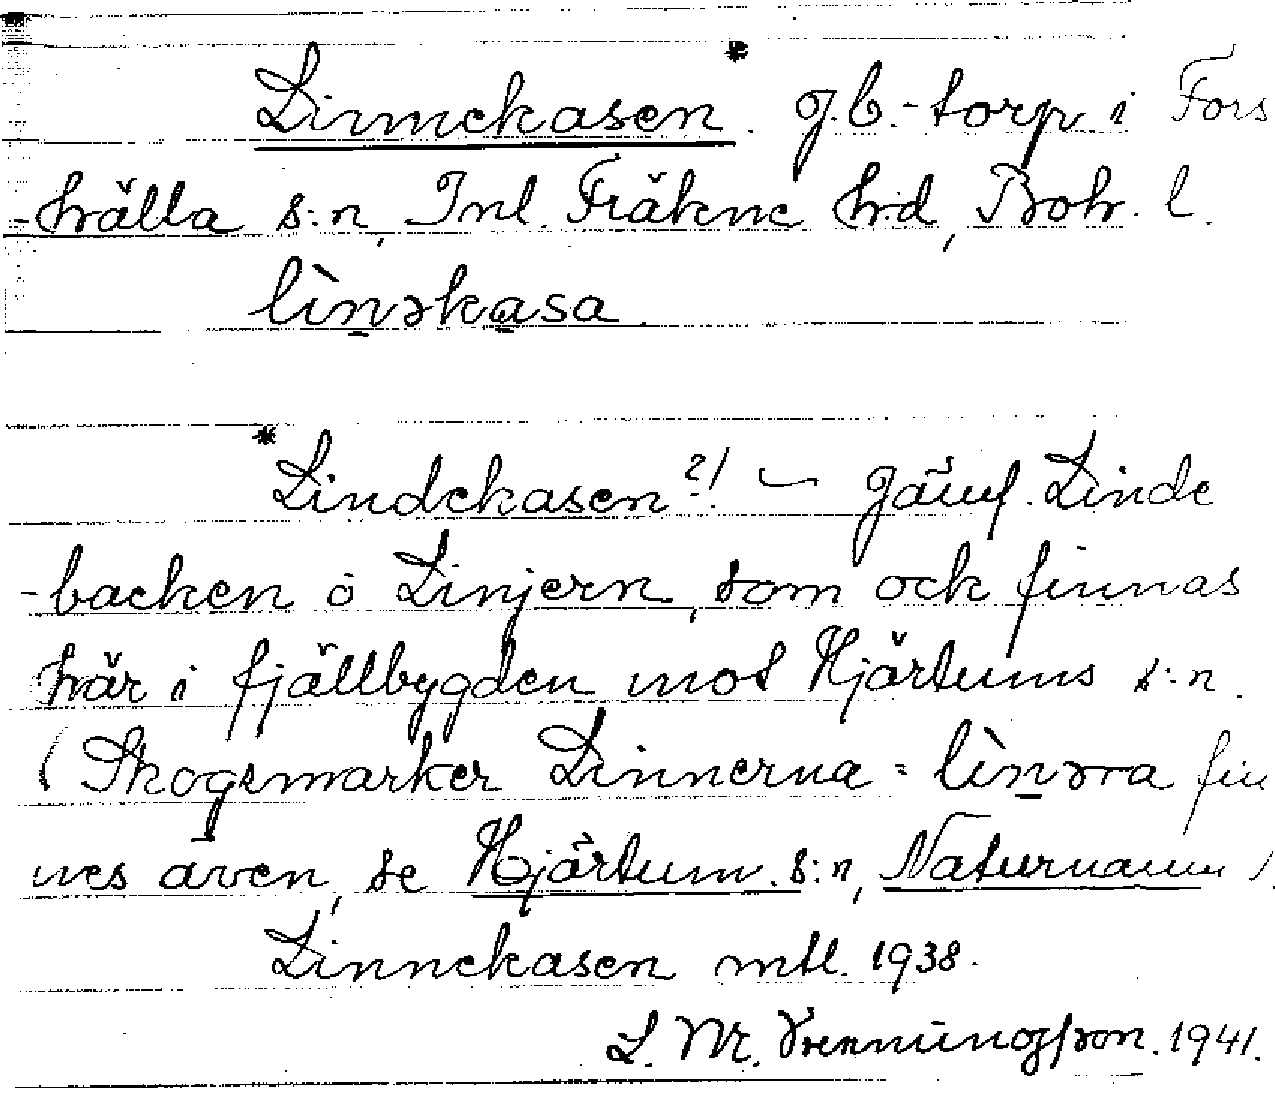 Linnekasen* g.b.-torp i Fors
-hälla s:n, Inl. Fräkne hd, Boh. l.
lìnəkasa
*Lindekasen?! – jämf. Linde
-backen ö Linjern, som ock finnas
här i fjällbygden mot Hjärtums s:n.
(Skogsmarker Linnerna = lìnərа fin
nes även, se Hjärtum s:n, Naturnamn).
Linnekasen mtl. 1938.
1941.